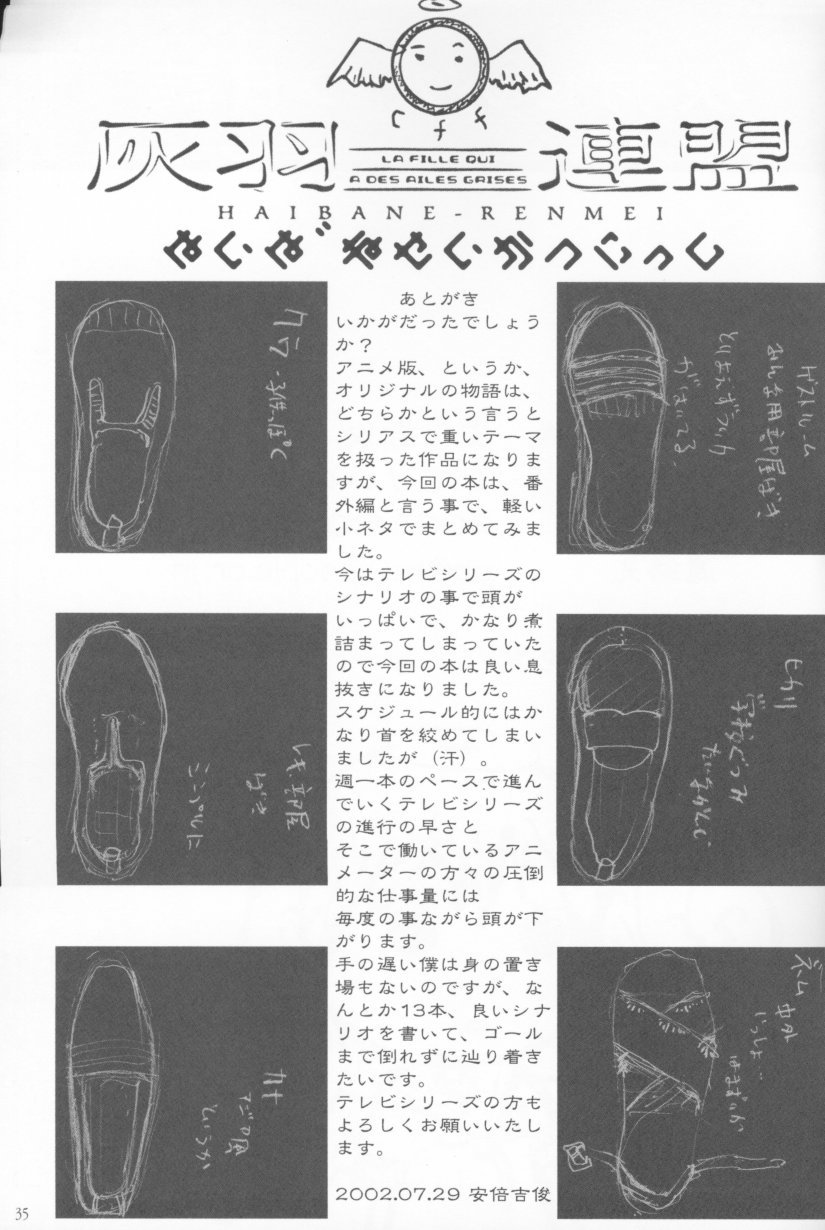 cff
灰羽連盟
LA FILLE QUI
A DES AILES GRISES
HAIBANE-RENMEI
はいばねせいかつにっし
あとがき
いかがだったでしょう
か？
アニメ版、というか、
オリジナルの物語は、
どちらかという言うと
シリアスで重いテーマ
を扱った作品になりま
すが、今回の本は、番
外編と言う事で、軽い
小ネタでまとめてみま
した。
今はテレビシリーズの
シナリオの事で頭が
いっぱいで、かなり煮
詰まってしまっていた
ので今回の本は良い息
抜きになりました。
スケジュール的にはか
なり首を絞めてしまい
ましたが（汗）。
週一本のペースで進ん
でいくテレビシリーズ
の進行の早さと
そこで働いているアニ
メーターの方々の圧倒
的な仕事量には
毎度の事ながら頭が下
がります。
手の遅い僕は身の置き
場もないのですが、な
んとか13本、良いシナ
リオを書いて、ゴール
まで倒れずに辿り着き
たいです。
テレビシリーズの方も
よろしくお願いいたし
ます。
2002.07.29 安倍吉俊
クラ・子供っぽく
ゲストルーム
みんな用部屋ばき
レキ 部屋
ばき
シンプルに
ヒカリ
カナ
ネム
35